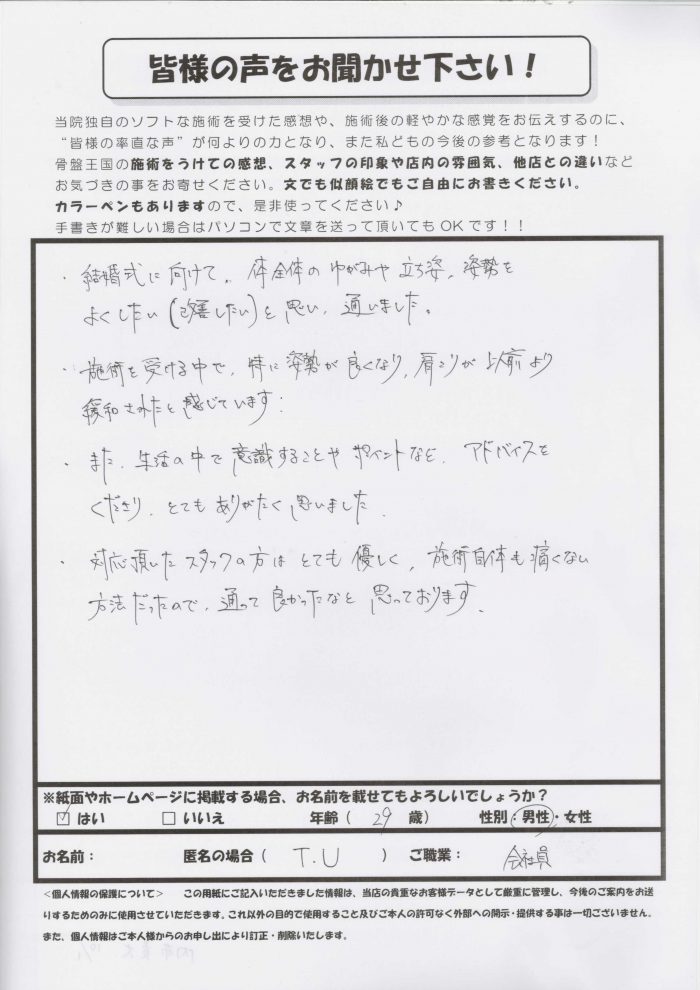 皆様の声をお聞かせ下さい！
当院独自のソフトな施術を受けた感想や、施術後の軽やかな感覚をお伝えするのに、
“皆様の率直な声”が何よりの力となり、また私どもの今後の参考となります！
骨盤王国の施術をうけての感想、スタッフの印象や店内の雰囲気、他店との違いなど
お気づきの事をお寄せください。文でも似顔絵でもご自由にお書きください。
カラーペンもありますので、是非使ってください♪
手書きが難しい場合はパソコンで文章を送って頂いてもOKです！！
・結婚式に向けて、体全体のゆがみや立ち姿、姿勢を
よくしたい(改善したい)と思い、通いました。
・施術を受ける中で、特に姿勢が良くなり、肩こりが以前より
緩和されたと感じています。
・また、生活の中で意識することやポイントなど、アドバイスを
くださり、とてもありがたく思いました。
・対応頂いたスタッフの方はとても優しく、施術自体も痛くない
方法だったので、通って良かったなと思っております。
※紙面やホームページに掲載する場合、お名前を載せてもよろしいでしょうか？
☑ はい □ いいえ 年齢（ 29 歳） 性別：男性・女性
お名前： 匿名の場合（ T.U ） ご職業： 会社員
＜個人情報の保護について＞ この用紙にご記入いただきました情報は、当店の貴重なお客様データとして厳重に管理し、今後のご案内をお送
りするためのみに使用させていただきます。これ以外の目的で使用すること及びご本人の許可なく外部への開示・提供する事は一切ございません。
また、個人情報はご本人様からのお申し出により訂正・削除いたします。